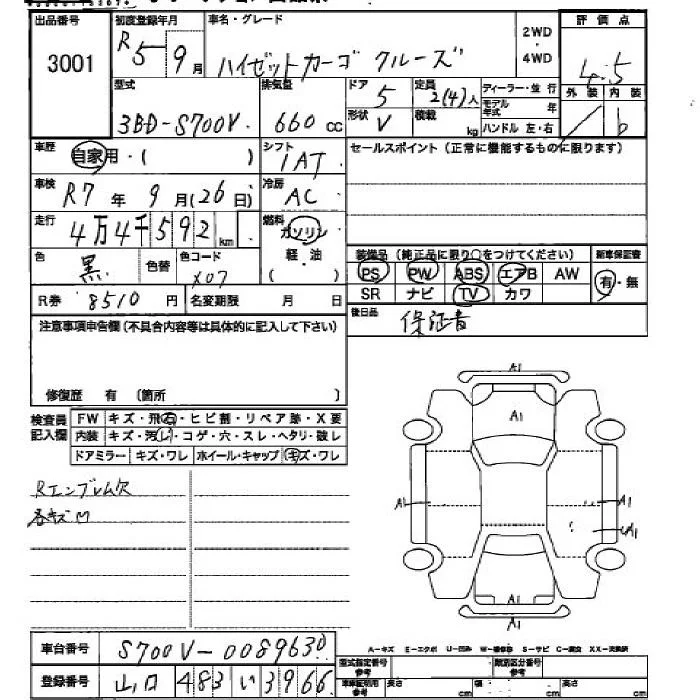 出品番号 初度登録年月 車名・グレード 2WD・4WD 評価点
3001 R5 9月 ハイゼットカーゴ クルーズ 4.5
型式 排気量 ドア 定員 ディーラー・並行 外装 内装
3BD-S700V 660cc 5 2(4)人 モデル年式 年 b
形状 V 積載 kg ハンドル 左・右
車歴 自家用・( ) シフト 1AT セールスポイント(正常に機能するものに限ります)
車検 R7年 9月(26日) 冷房 AC
走行 4万4千592km 燃料 ガソリン
色 黒 色替 色コード X07 軽・油 ( )
装備品(純正品に限り○をつけてください) 新車保証書
PS PW ABS エアB AW 有・無
SR ナビ TV カワ
R券 8510円 名変期限 月 日
後日品 保証書
注意事項申告欄(不具合内容等は具体的に記入して下さい)
修復歴 有 (箇所 )
検査員記入欄 FW キズ・飛石・ヒビ割・リペア跡・X要
内装 キズ・汚(し)・コゲ・穴・スレ・ヘタリ・破レ
ドアミラー キズ・ワレ ホイール・キャップ キズ・ワレ
Rエンブレム欠
各キズ凹
A1
A1
A1 A1
UA1
A1
A1
車台番号 S700V-0089630
登録番号 山口 483 い 3966
A-キズ E-エクボ U-凹み W-補修跡 S-サビ C-腐食 XX-交換済
型式指定番号 参考 類別区分番号 参考
車庫証明用 参考 長さ cm 幅 cm 高さ cm